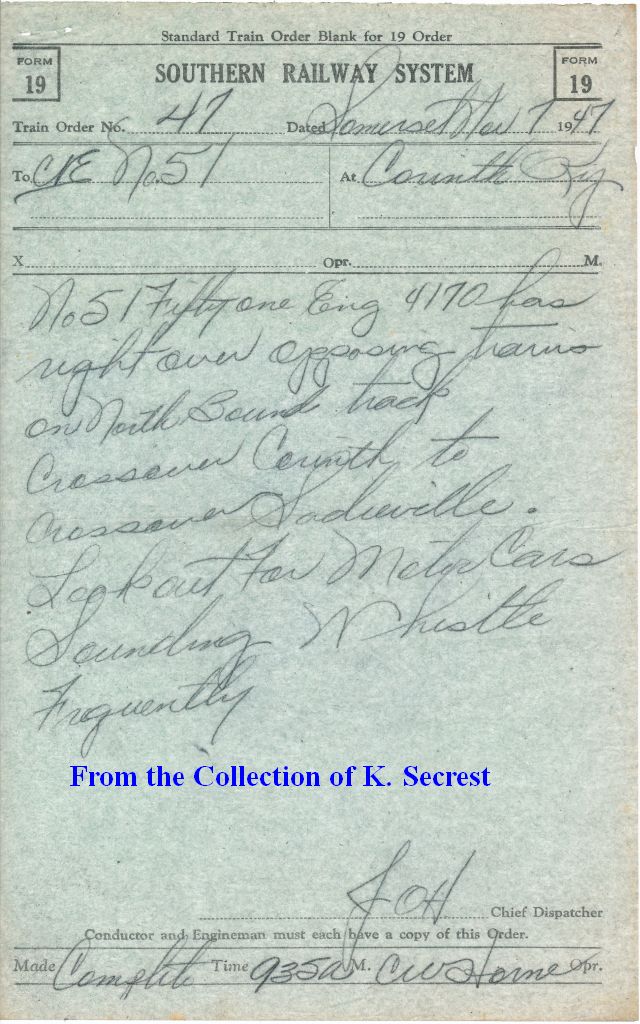 Standard Train Order Blank for 19 Order
FORM 19
SOUTHERN RAILWAY SYSTEM
FORM 19
Train Order No. 47 Dated Somerset Nov 7 1947
To C&E No. 51 At Corinth Ky
X Opr. M.
No 51 Fifty one Eng 4170 has
right over opposing trains
on North Bound track
Crossover Corinth to
Crossover Sadieville.
Look out For Motor Cars
Sounding Whistle
Frequently
From the Collection of K. Secrest
JOH Chief Dispatcher
Conductor and Engineman must each have a copy of this Order.
Made Complete Time 935a M. CW Horne Opr.